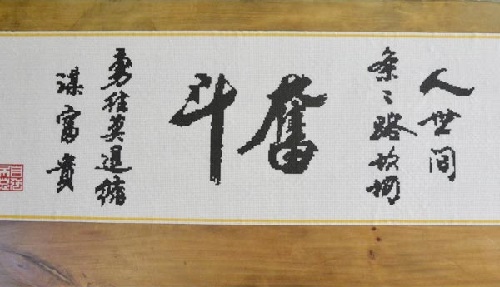 人世间
条々路坎坷
奮斗
勇往莫退缩
谋富貴